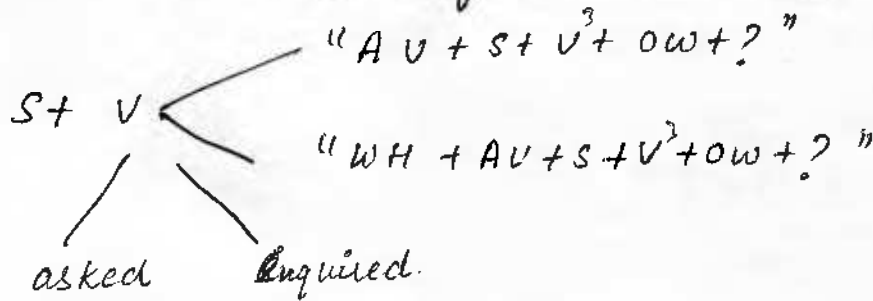 "AV + S + V³ + OW + ?"
S + V
"WH + AV + S + V³ + OW + ?"
asked enquired.